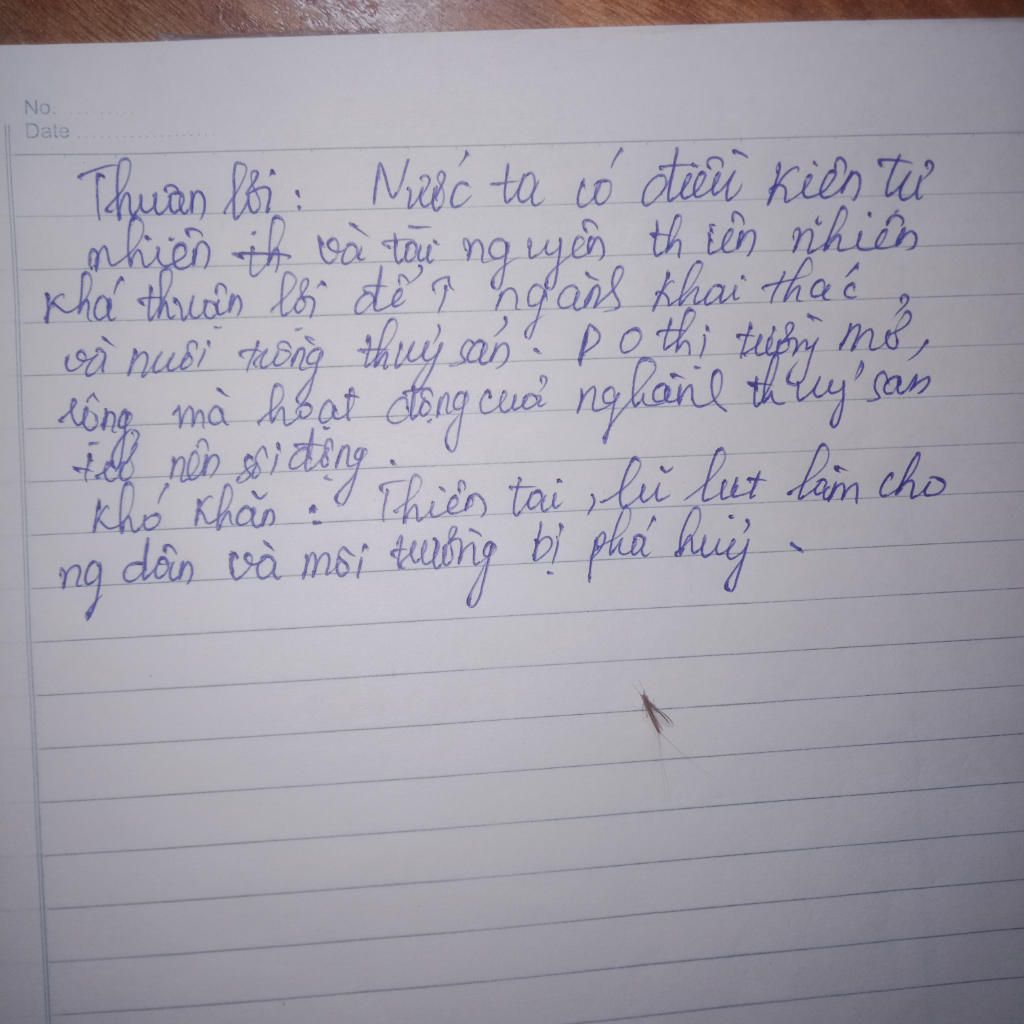 No. ............
Date ....................
Thuân lời : Nước ta có điều kiên tự
nhiên th và tài nguyên thiên nhiên
khá thuận lời để ↑ ngành khai thác
và nuôi trồng thuỷ sản. Do thị trường mở,
rộng mà hoạt động của nghành thuỷ san
nên sôi động.
Khó khăn : Thiên tai, lũ lut làm cho
ng dân và môi trường bị phá huỷ.